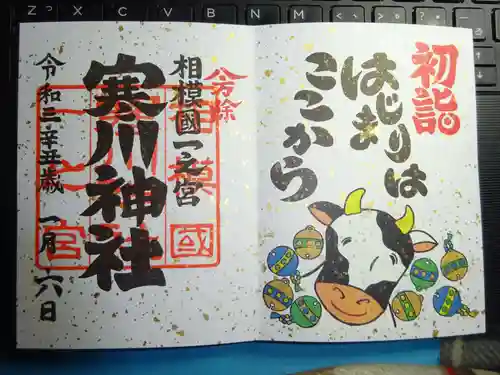 初詣
はじまりは
ここから
八方除
相模國一之宮
寒川神社
令和三辛丑歳 一月六日
相模國
一之宮
Z っ
X
C
V
B
N
M